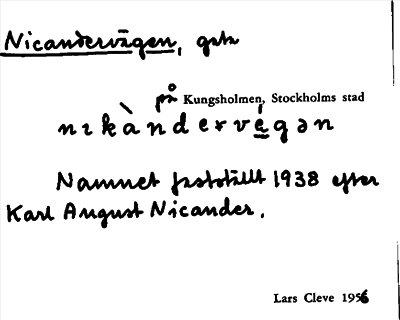 Nicandervägen, gata
på Kungsholmen, Stockholms stad
nɪkàndervé̲gən
Namnet fastställt 1938 efter
Karl August Nicander.
Lars Cleve 1956